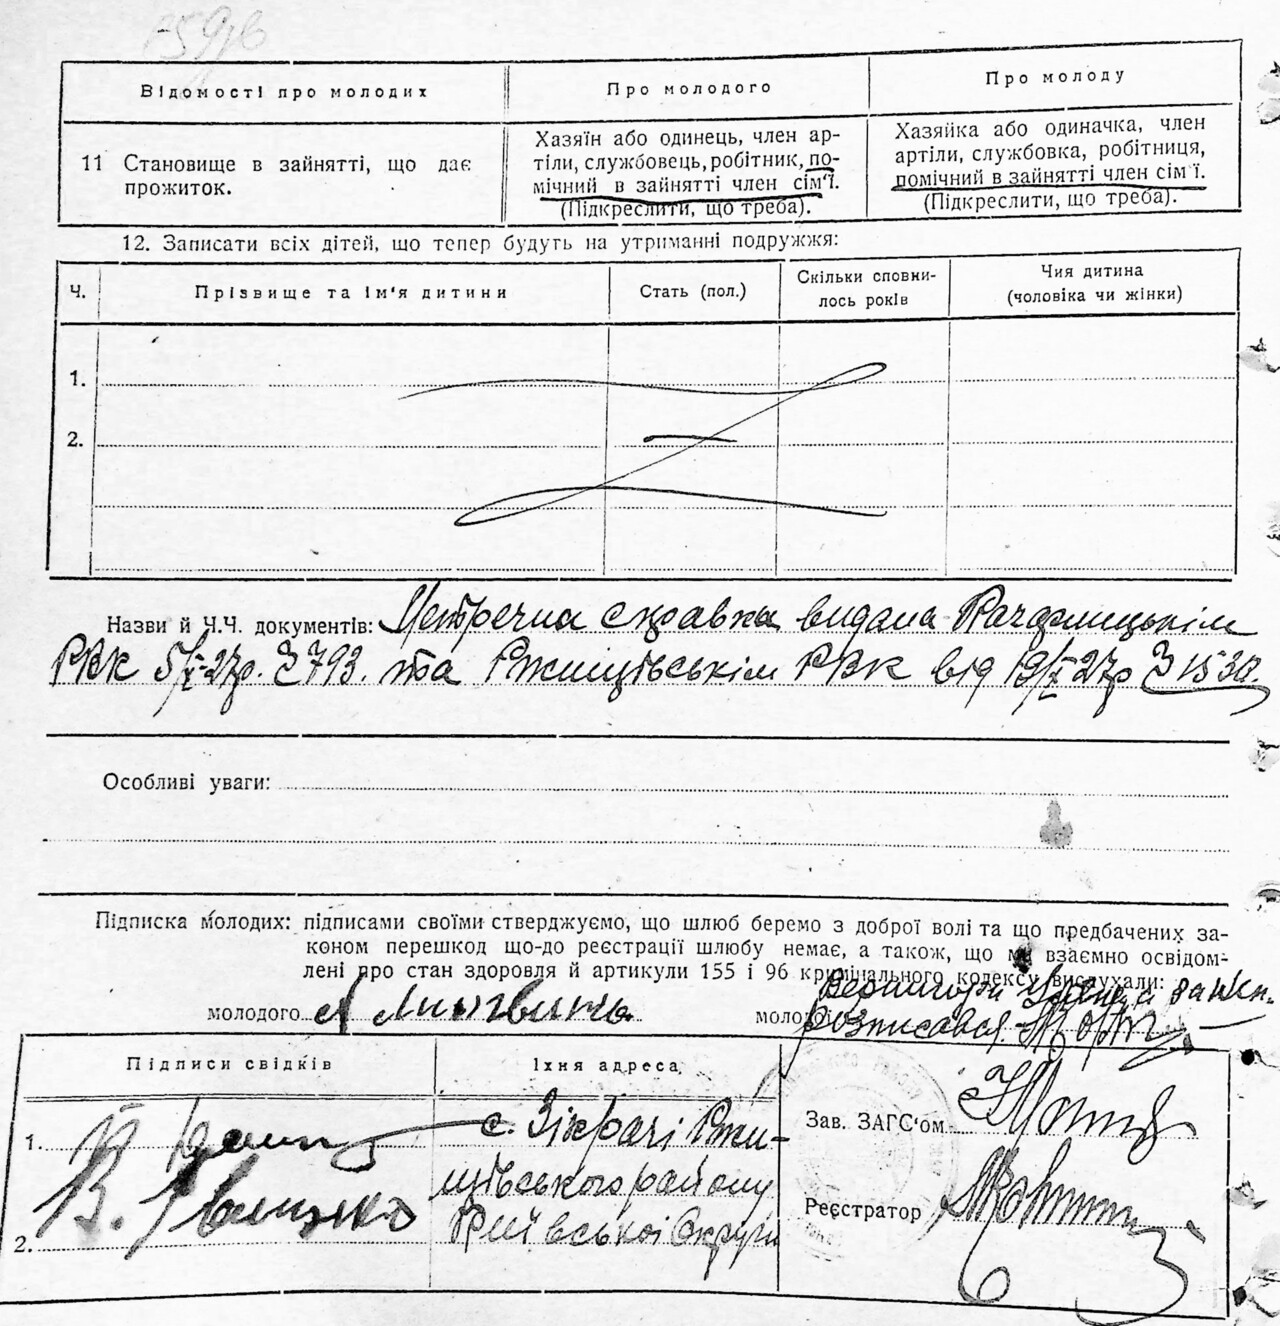 Відомості про молодих
Про молодого
Про молоду
11 Становище в зайнятті, що дає прожиток.
Хазяїн або одинець, член ар-
тіли, службовець, робітник, по-
мічний в зайнятті член сім'ї.
(Підкреслити, що треба).
Хазяйка або одиначка, член
артіли, службовка, робітниця,
помічний в зайнятті член сім'ї.
(Підкреслити, що треба).
12. Записати всіх дітей, що тепер будуть на утриманні подружжя:
Ч.
Прізвище та ім'я дитини
Стать (пол.)
Скільки сповни-
лось років
Чия дитина
(чоловіка чи жінки)
1.
2.
Назви й Ч.Ч. документів: Метрична справка видана
РВК 5/X 27р. № 793. та Ржищівськім РВК від 19/X 27р № 1530.
Особливі уваги:
Підписка молодих: підписами своїми стверджуємо, що шлюб беремо з доброї волі та що предбачених за-
коном перешкод що-до реєстрації шлюбу немає, а також, що ми взаємно освідом-
лені про стан здоровля й артикули 155 і 96 кримінального кодексу вислухали:
молодого
молодої розписався
Підписи свідків
Їхня адреса
1.
2.
с. Зікрачі Ржи-
щівського району
Київської Округи
Зав. ЗАГС'ом
Реєстратор